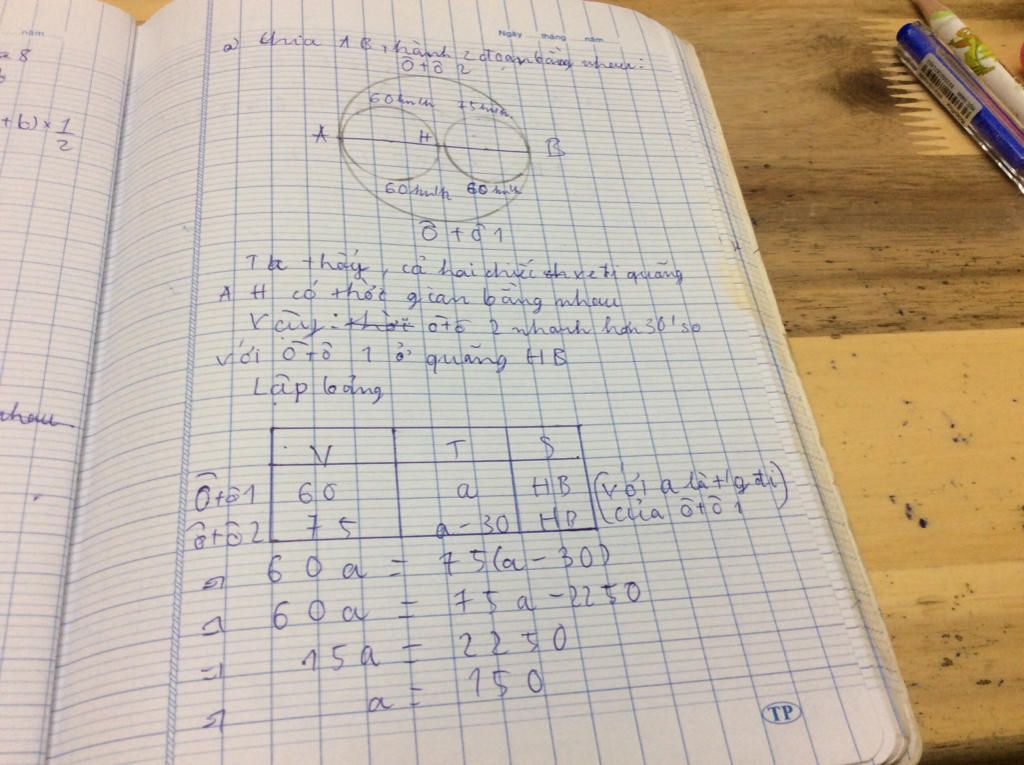 năm
Ngày tháng năm
8
+b) × 1/2
nhau
a) Chia AB thành 2 đoạn bằng nhau:
Ô tô 2
60km/h 75km/h
A H B
60km/h 60km/h
Ô tô 1
Ta thấy, cả hai chiếc xe đi quãng
AH có thời gian bằng nhau
Vậy: thời ô tô 2 nhanh hơn 30' so
với Ô tô 1 ở quãng HB
Lập bảng
V T S
Ô tô 1 60 a HB (với a là tg đi
ô tô 2 75 a - 30 HB của ô tô 1)
=> 60a = 75(a - 30)
=> 60a = 75a - 2250
=> 15a = 2250
=> a = 150
TP